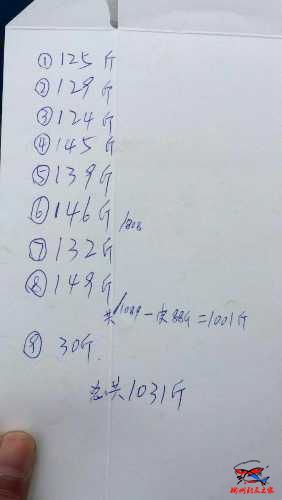 ①125斤
②129斤
③124斤
④145斤
⑤139斤
⑥146斤
⑦132斤
⑧149斤
共1089-皮88斤=1001斤
⑨30斤.
总共1031斤